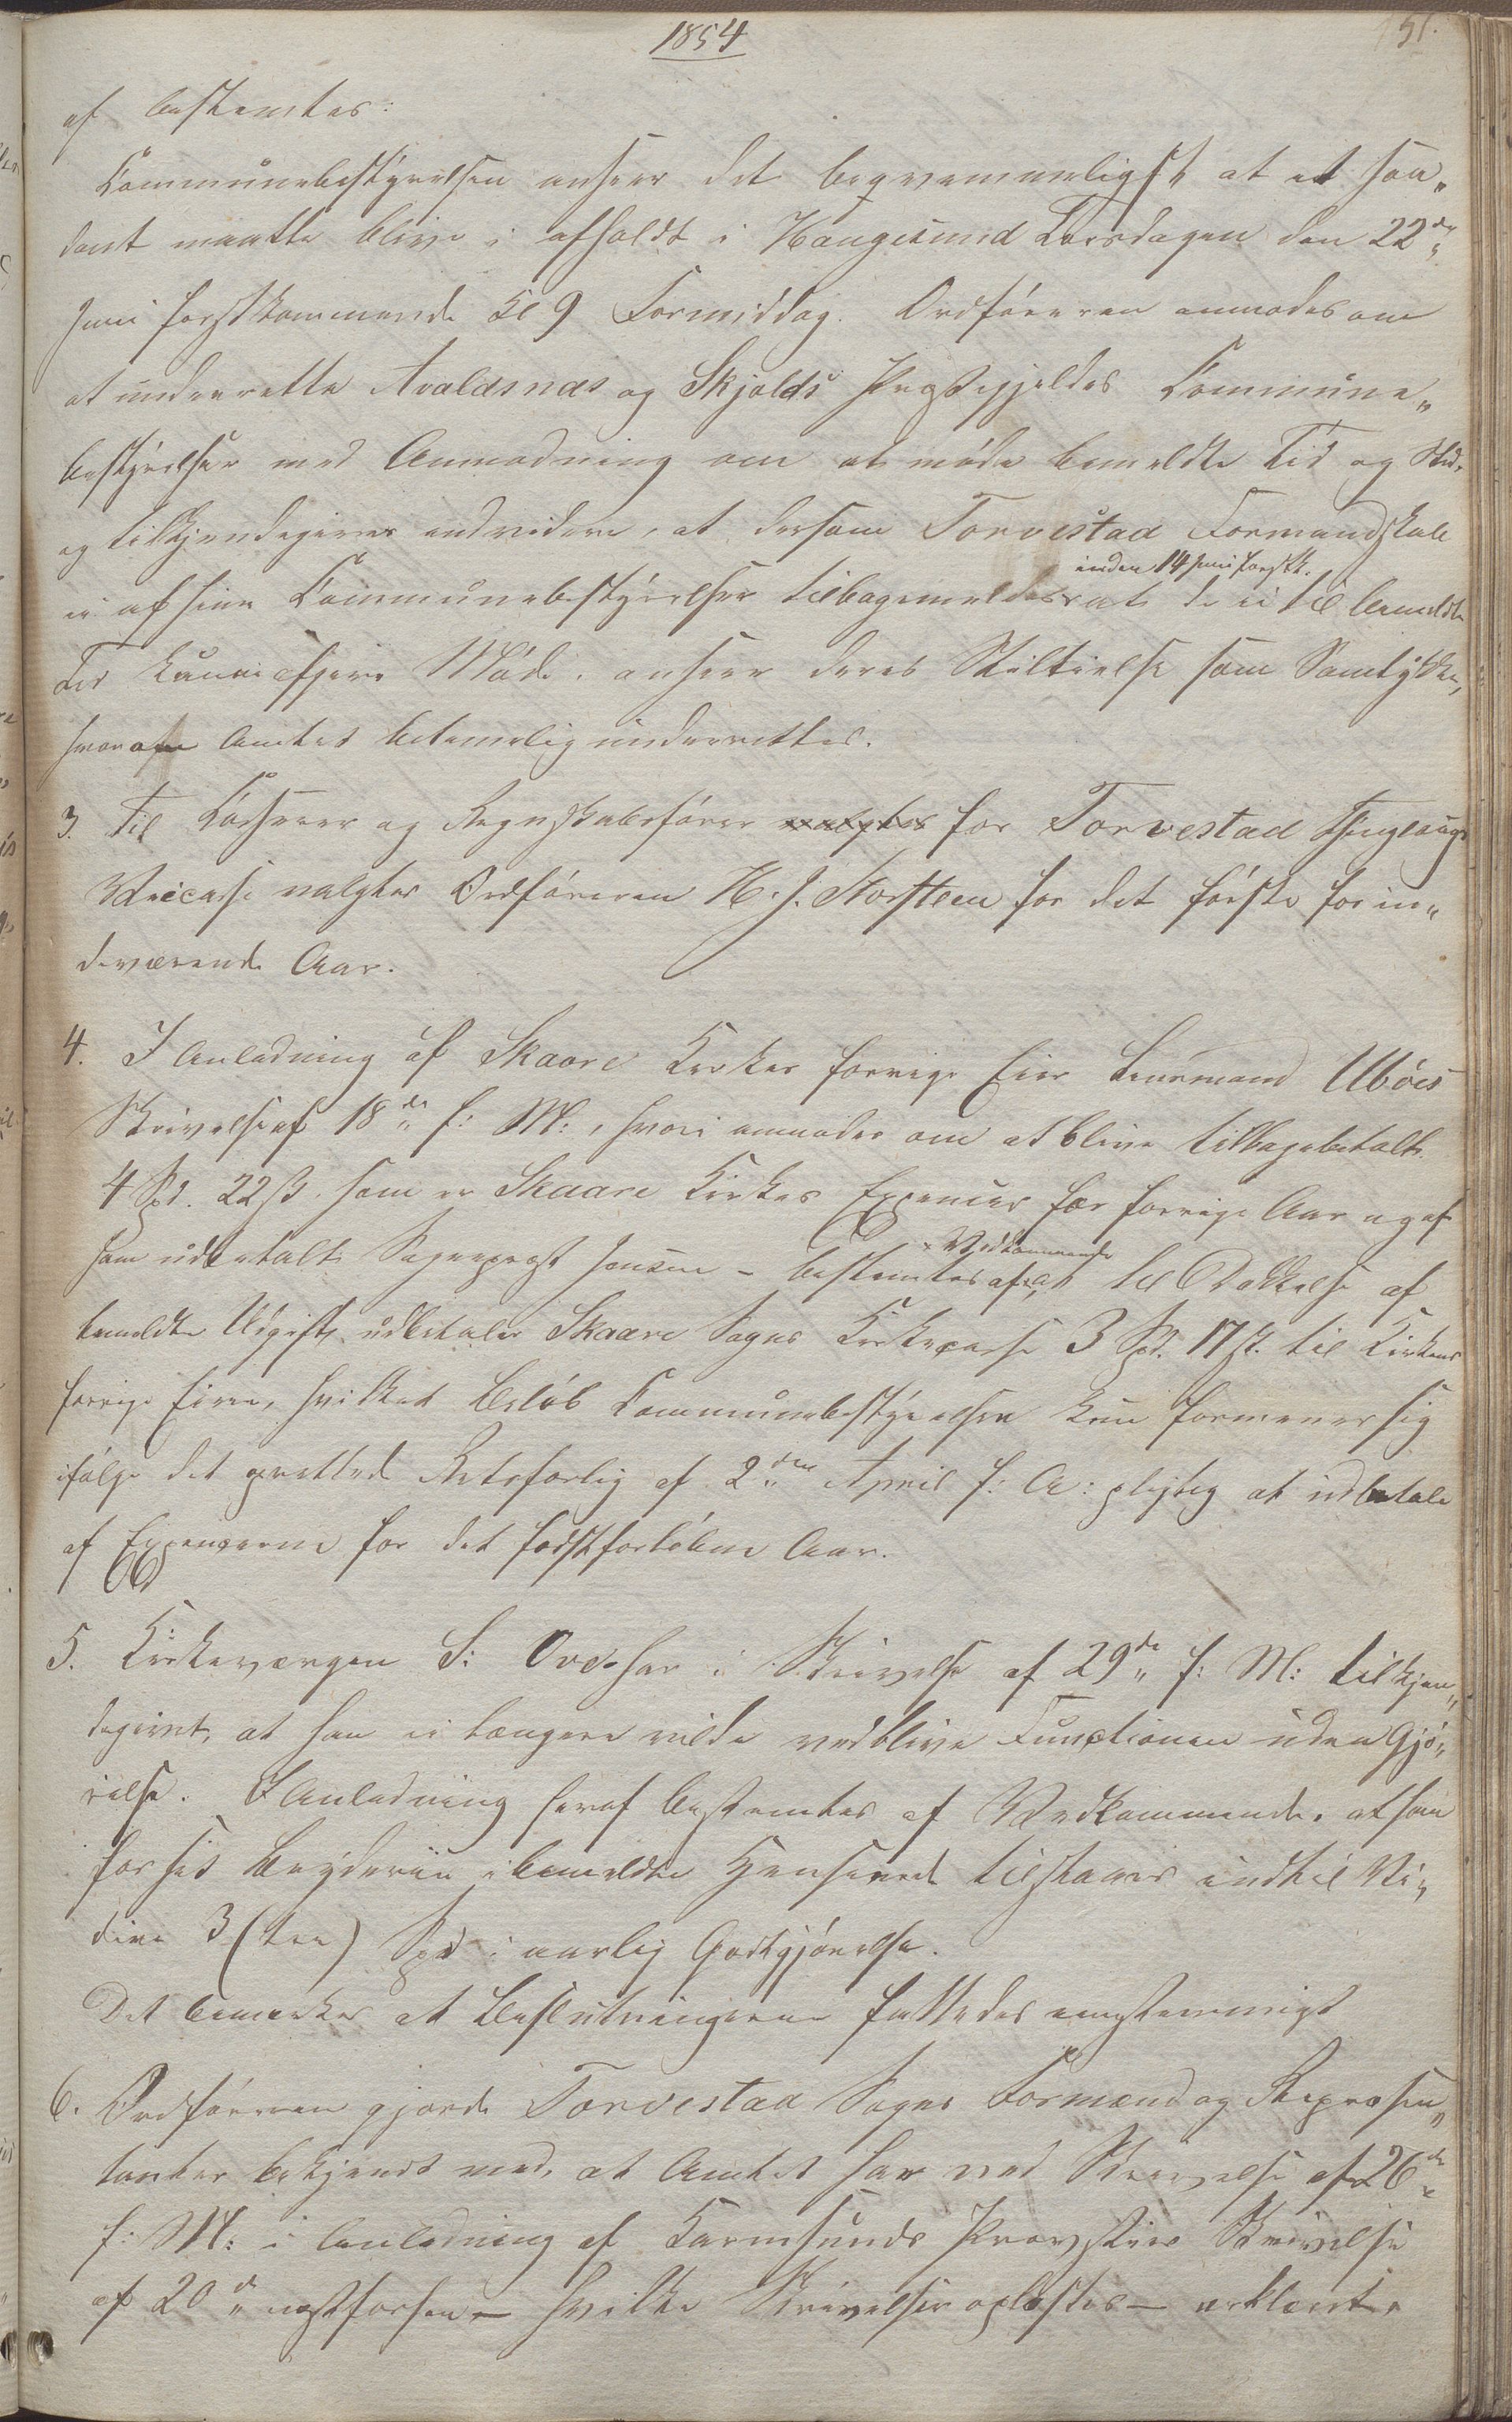 1854
51.
af bestemtes:
Communebestyrelsen anseer det beqvemmeligst at et saa„
dant maatte blive i afholdt i Haugesund Torsdagen den 22de
Juni førstkommende Kl 9 Formiddag. Ordføreren anmodes om
at underrette Avaldsnæs og Skjolds Præstegjeldes Commune„
bestyrelser med Anmodning om at møde bemeldte Tid og Sted,
og tilkjendegives endvidere, at dersom Torvestad Formandskab
inden 14 Juni førstk.
ei af hine Communebestyrelser tilbagemeldes at de ei til bemeldte
Tid kunne afgive Møde, anseer deres Stiltielse som Samtykke,
hvorom Amtet betimelig underrettes.
3. Til Casserer og Regnskabsfører valgtes for Torvestad Thinglaugs
Veicasse valgtes Ordføreren H. J. Storsteen for det første for in„
deværende Aar.
4. I Anledning af Skaare Kirkes forrige Eier Lensmand Uböes
Skrivelse af 18de f: M:, hvori anmodes om at blive tilbagebetalt
4 Spd. 22 ß. som er Skaare Kirkes Expencer for forrige Aar og af
ham udbetalt Sognepræst Jensen – bestemtes af at til Dækkelse af
Vedkommende
bemeldte Udgift udbetales Skaare Sogns Kirkecasse 3 Spd. 17 ß. til Kirkens
forrige Eier, hvilket Beløb Communebestyrelsen kun formener sig
ifølge det oprettede Retsforlig af 2den April f: A: pligtig at udbetale
af Expencerne for det sidstforløbne Aar.
5. Kirkeværgen S: Ove har i Skrivelse af 29de f: M: tilkjen„
degivet, at han ei længere vilde vedblive Functionen uden Gjø„
relse. I Anledning heraf bestemtes af Vedkommende, at han
for sit Bryderiie i bemeldte Henseende tilstaaes indtil Vi„
dere 3 (tre) Spd i aarlig Godtgjørelse.
Det bemærkes at Beslutningerne fattedes eenstemmigt
6. Ordføreren gjorde Torvestad Sogns Formænd og Repræsen„
tanter bekjendt med, at Amtet har ved Skrivelse af 26de
f: M: i Anledning af Karmsunds Provsties Skrivelse
af 20de næstforhen – hvilke Skrivelser oplæstes – erklæret,